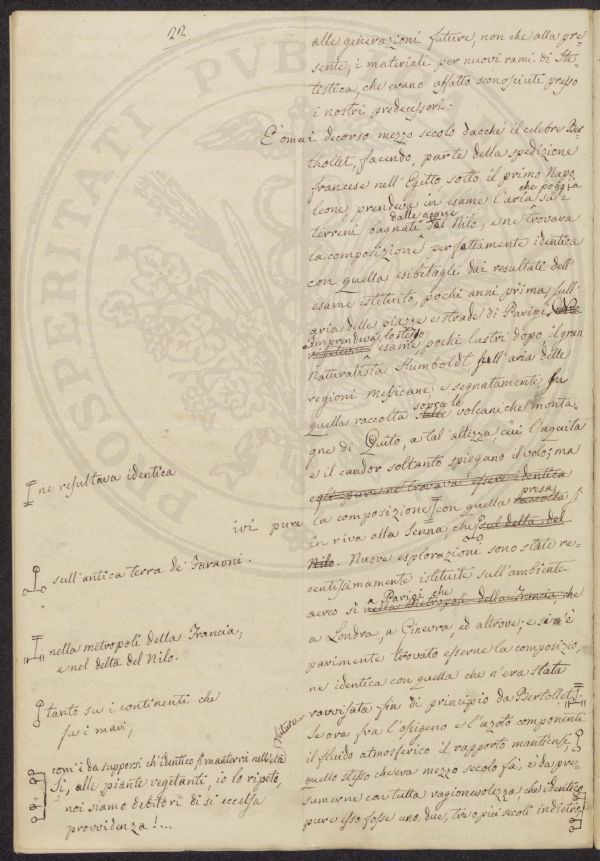 22
alle generazioni future, non che alla pre=
sente, i materiali per nuovi rami di Sta=
tistica, che erano affatto sconosciuti presso
i nostri predecessori.
È omai decorso mezzo secolo dacchè il celebre Ber=
thollet, facendo parte della spedizione
francese nell'Egitto, sotto il primo Napo
leone, prendeva in esame l'aria che poggia su i
terreni bagnati dalle acque del Nilo, e ne trovava
la composizione perfettamente identica
con quella esibitagli dai resultati dell'
esame istituito, pochi anni prima, sull'
aria delle piazze e strade di Parigi.
Imprendeva lo stesso esame, pochi lustri dopo il gran
Naturalista Humboldt sull'aria delle
regioni Messicane, e segnatamente su
quella raccolta sopra le vulcaniche monta=
gne di Quito, a tal altezza, cui l'aquila
e il candor soltanto spiegano il volo; ma
egli pure ne trovava essere identica
ivi pure la composizione con quella presa sì
in riva alla Senna, che sul delta del
Nilo. Nuove esplorazioni sono stati re=
centissimamente istituite sull'ambiente
aereo sì a Parigi che nella Metropoli della Francia, che
a Londra, a Ginevra, ed altrove; e si è
parimente trovato esserne la composizio=
ne identica con quella che n'era stata
ravvisata fin di principio da Bertollet
Se ora fra l'ossigeno e l'azoto componente
il fluido atmosferico il rapporto mantiensi,
quello stesso che era mezzo secolo fà, è da pre=
sumerne con tutta ragionevolezza che identico
pure esso fosse uno, due, tre o più secoli indietro,
ne resultava identica
sull'antica terra de' Faraoni.
nella metropoli della Francia,
e nel delta del Nilo.
tanto su i continenti che
su i mari,
com'è da supporsi ch'identico si manterrà nell'età future
Sì, alle piante vegetanti, io lo ripeto,
noi siamo debitori di sì eccelsa
provvidenza!...